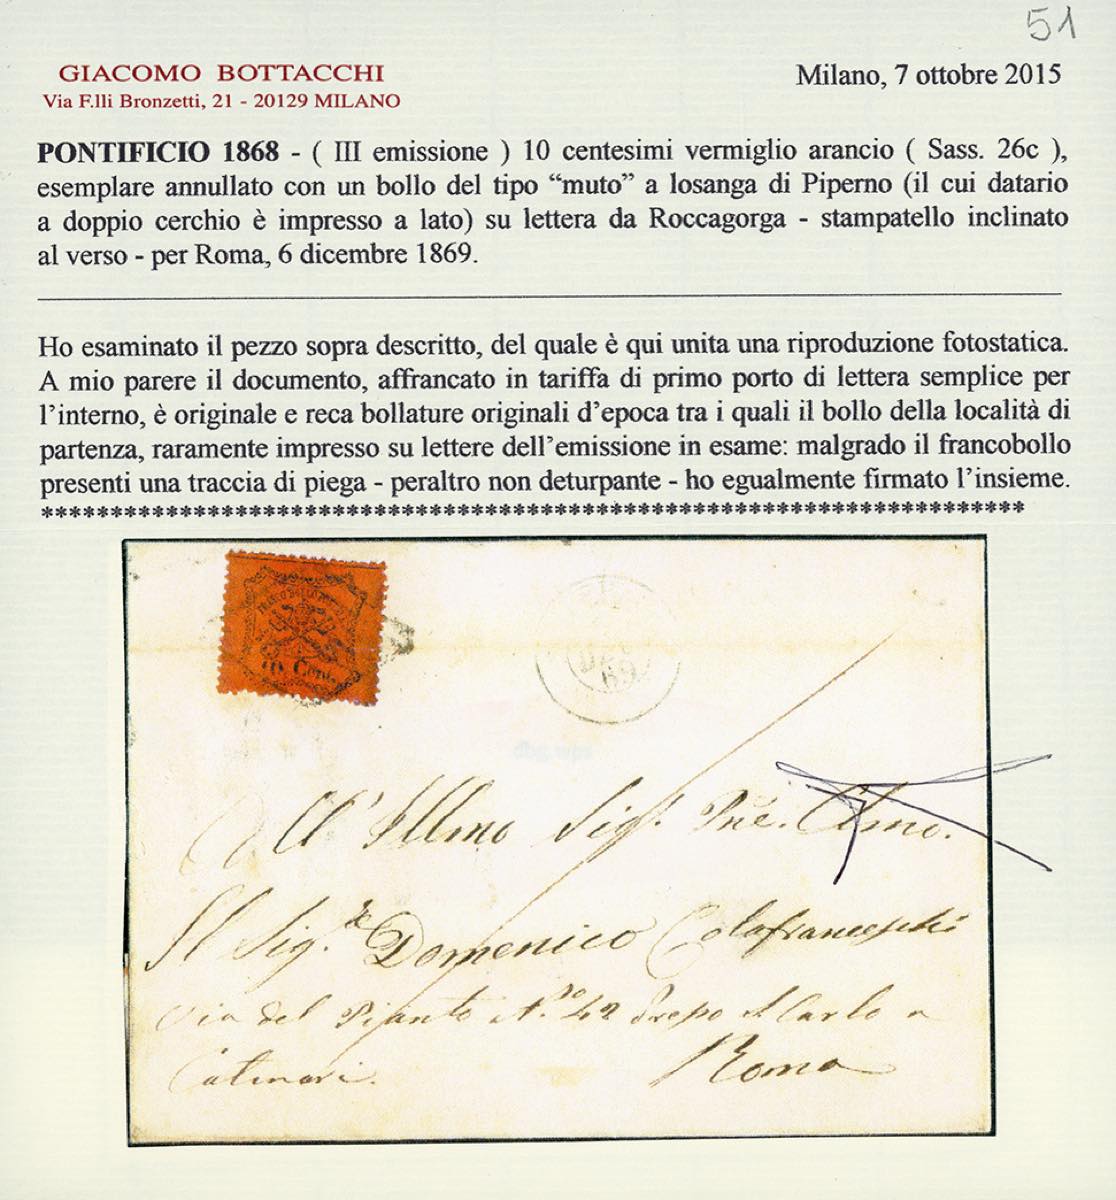 51
GIACOMO BOTTACCHI
Via F.lli Bronzetti, 21 - 20129 MILANO
Milano, 7 ottobre 2015
PONTIFICIO 1868 - ( III emissione ) 10 centesimi vermiglio arancio ( Sass. 26c ),
esemplare annullato con un bollo del tipo “muto” a losanga di Piperno (il cui datario
a doppio cerchio è impresso a lato) su lettera da Roccagorga - stampatello inclinato
al verso - per Roma, 6 dicembre 1869.
Ho esaminato il pezzo sopra descritto, del quale è qui unita una riproduzione fotostatica.
A mio parere il documento, affrancato in tariffa di primo porto di lettera semplice per
l’interno, è originale e reca bollature originali d’epoca tra i quali il bollo della località di
partenza, raramente impresso su lettere dell’emissione in esame: malgrado il francobollo
presenti una traccia di piega - peraltro non deturpante - ho egualmente firmato l’insieme.
**********************************************************************
FRANCO BOLLO POSTALE
10 Cent.
DEC
69
All' Illmo Sigr. Pne. Clmo.
Il Sigr. Domenico Colafranceschi
Via del Pianto No. 42 S. Carlo a
Catinari.
Roma